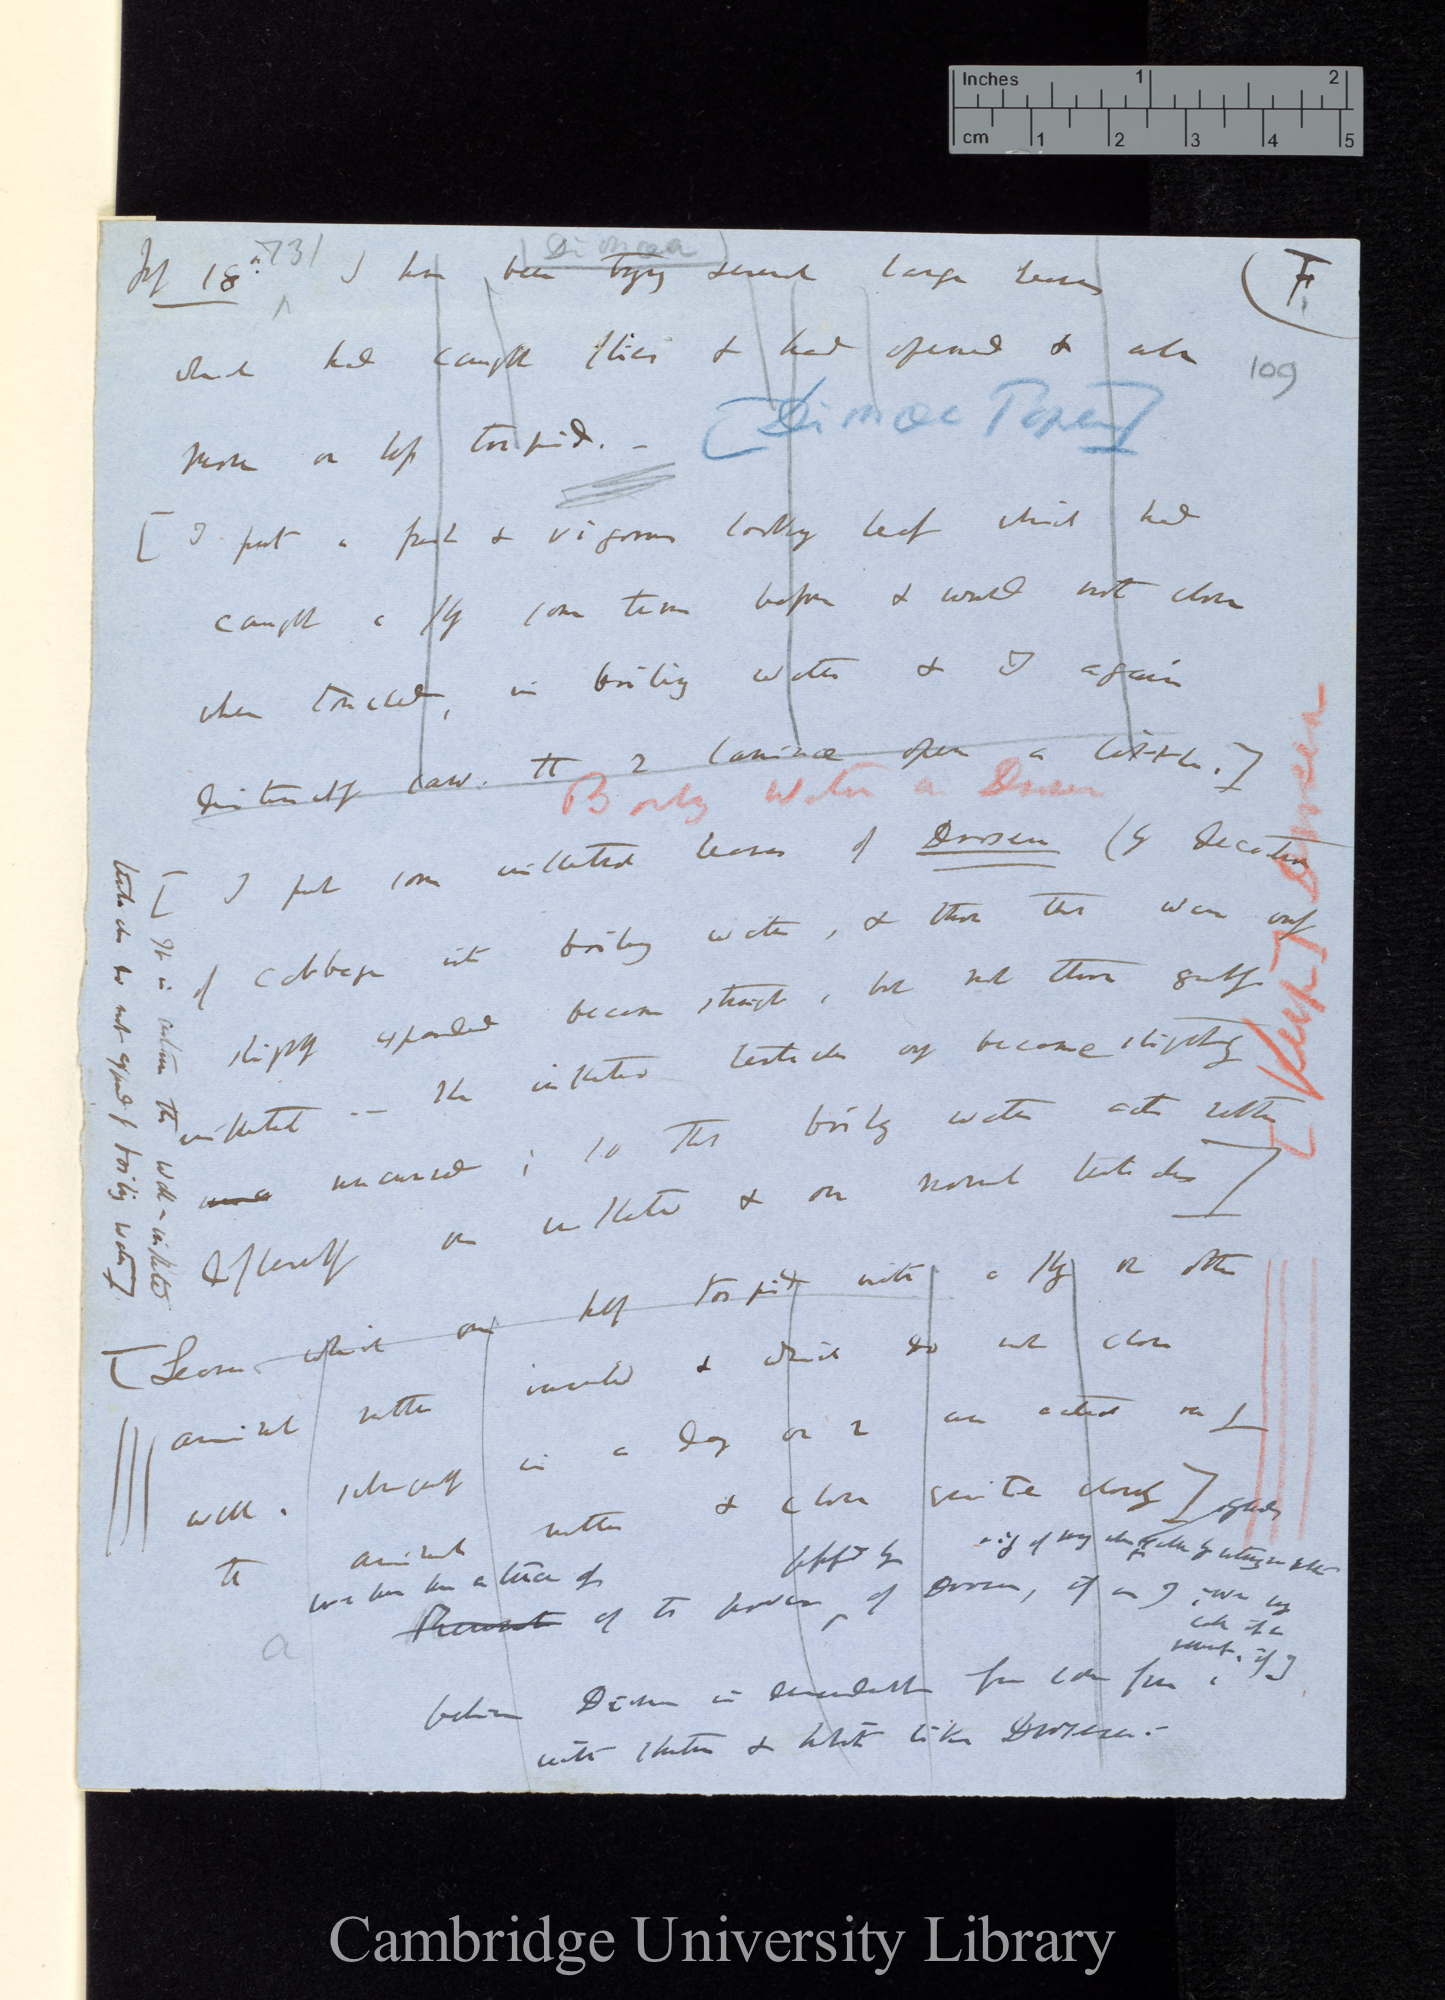 Inches 1 2
cm 1 2 3 4 5
(Dionaea)
18th /73/ I have been trying several large leaves
F.
which had caught flies & had opened & when
109
more or less torpid. —
[Dionaea Paper]
[I put a fresh & vigorous looking leaf which had
caught a fly some time before & would not close
when touched, in boiling water & I again
distinctly saw the 2 laminae open a little.]
Boiling Water on Drosera
I put some inflected leaves of Drosera (by decoction
of cabbage into boiling water, & those that were only
slightly expanded became straight, but not those quite
inflected — the inflected tentacles only become slightly
uncurved; so that boiling water acts rather
differently on inflected & on normal tentacles]
[Keep] Drosera
[It is certain the well-inflected
tentacles do not expand if boiling water]
[Leaves which are half torpid with a fly or other
animal matter inside & which do not close
well, subsequently in a day or 2 are acted on by
the animal matter & close quite closely]
a
of the power of Drosera, if as I
believe Dionaea is descendant from some form
with and like Drosera.—
Cambridge University Library